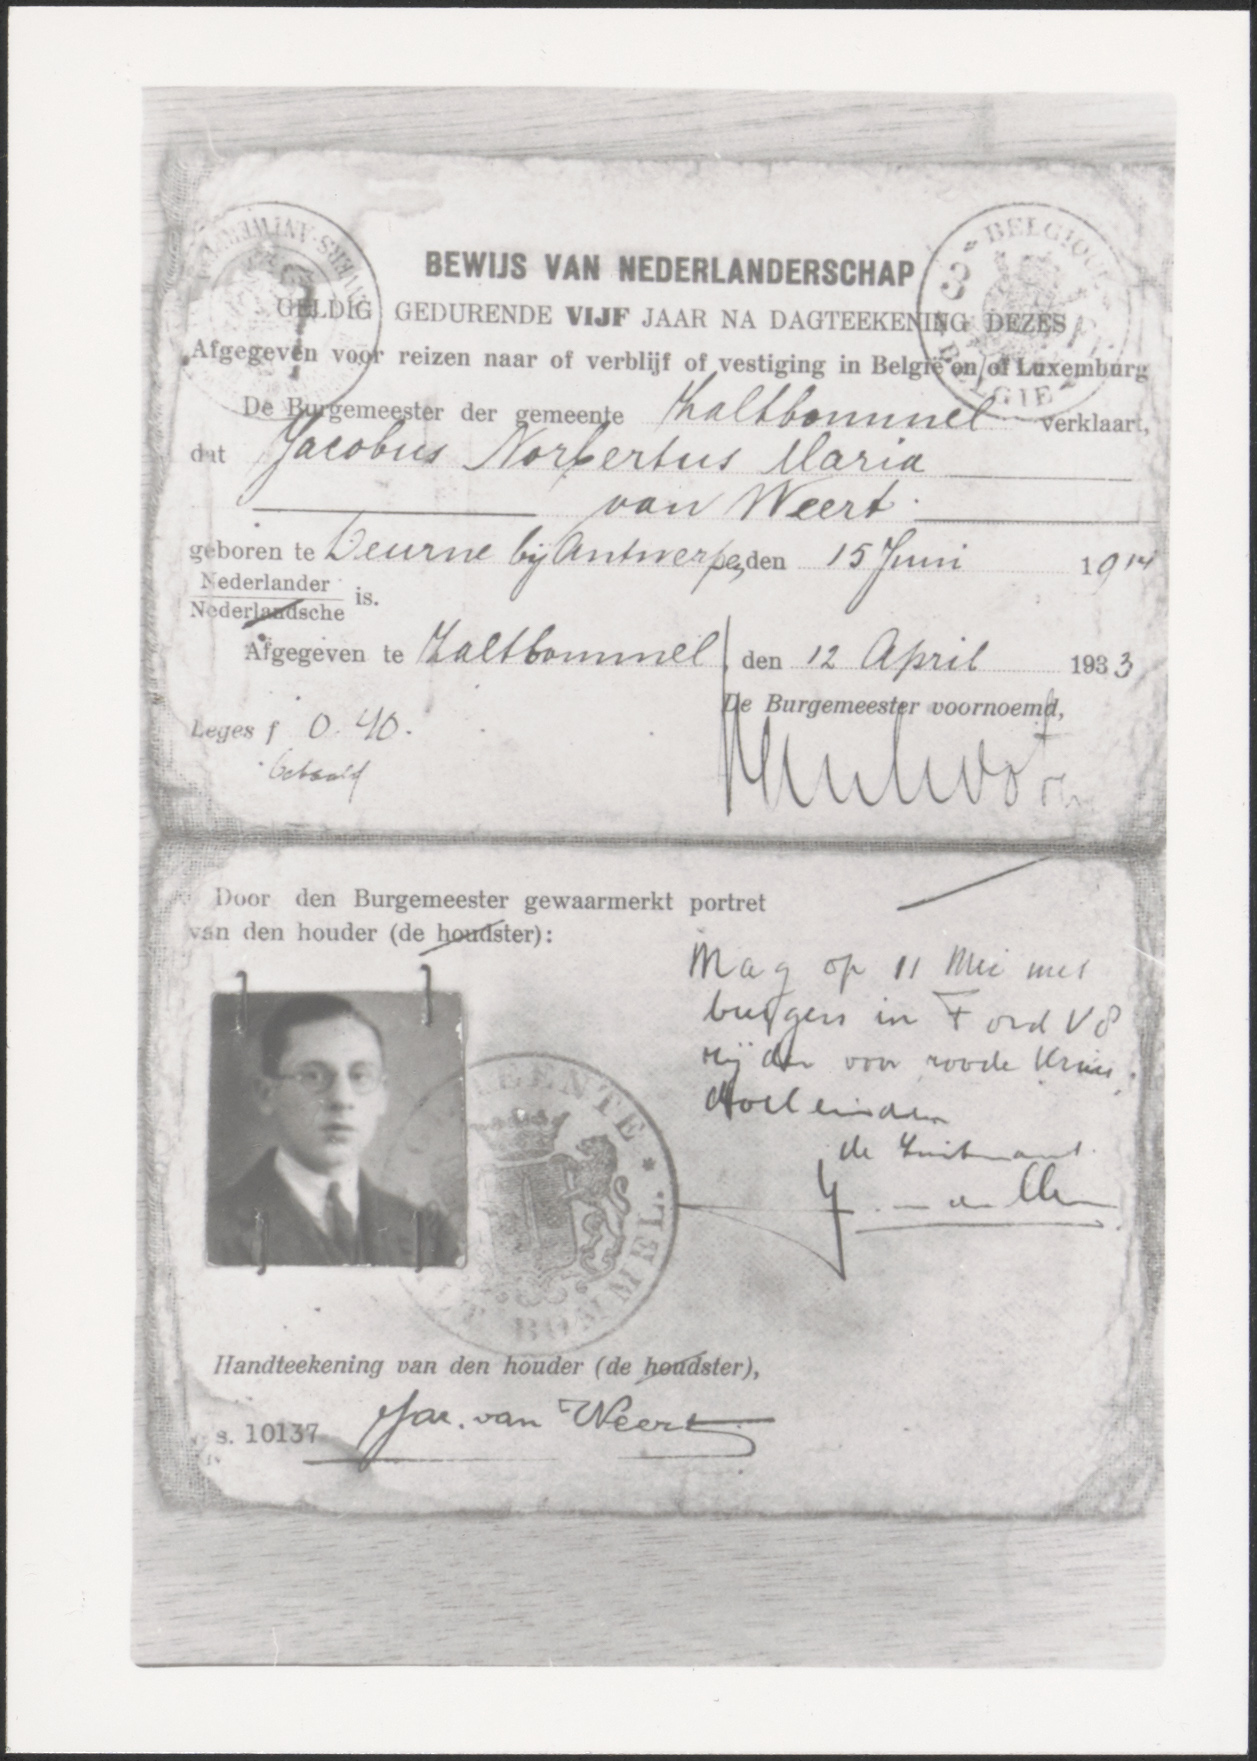 ANTWERPEN
BELGIQUE
BELGIE
BEWIJS VAN NEDERLANDERSCHAP
GELDIG GEDURENDE VIJF JAAR NA DAGTEEKENING DEZES
Afgegeven voor reizen naar of verblijf of vestiging in België en/of Luxemburg
De Burgemeester der gemeente Zaltbommel verklaart,
dat Jacobus Norbertus Maria
van Weert
geboren te Deurne bij Antwerpen, den 15 Juni 1914
Nederlander
Nederlandsche is.
Afgegeven te Zaltbommel, den 12 April 1933
De Burgemeester voornoemd,
Leges f 0.40.
betaald
Door den Burgemeester gewaarmerkt portret
van den houder (de houdster):
Mag op 11 Mei met
burgers in Ford V8
rijden voor roode Kruis
doeleinden
de Luitenant
GEMEENTE
BOMMEL.
Handteekening van den houder (de houdster),
s. 10137
Jac. van Weert